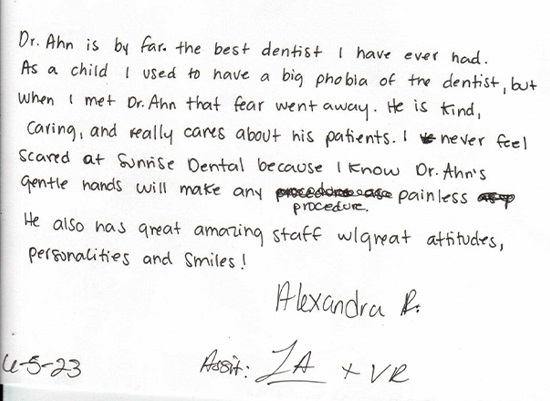 Dr. Ahn is by far the best dentist I have ever had.
As a child I used to have a big phobia of the dentist, but
when I met Dr. Ahn that fear went away. He is kind,
caring, and really cares about his patients. I never feel
scared at Sunrise Dental because I know Dr. Ahn's
gentle hands will make any painless
procedure.
He also has great amazing staff w/great attitudes,
personalities and smiles!
Alexandra R.
6-5-23 Assit: LA + VR